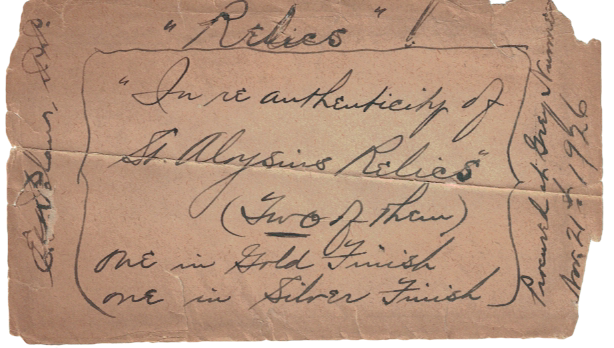 "Relics"!
"In re authenticity of
St. Aloysius Relics"
(Two of them)
one in Gold Finish
one in Silver Finish
Procured at Grey Nunnery
Nov. 21st 1926